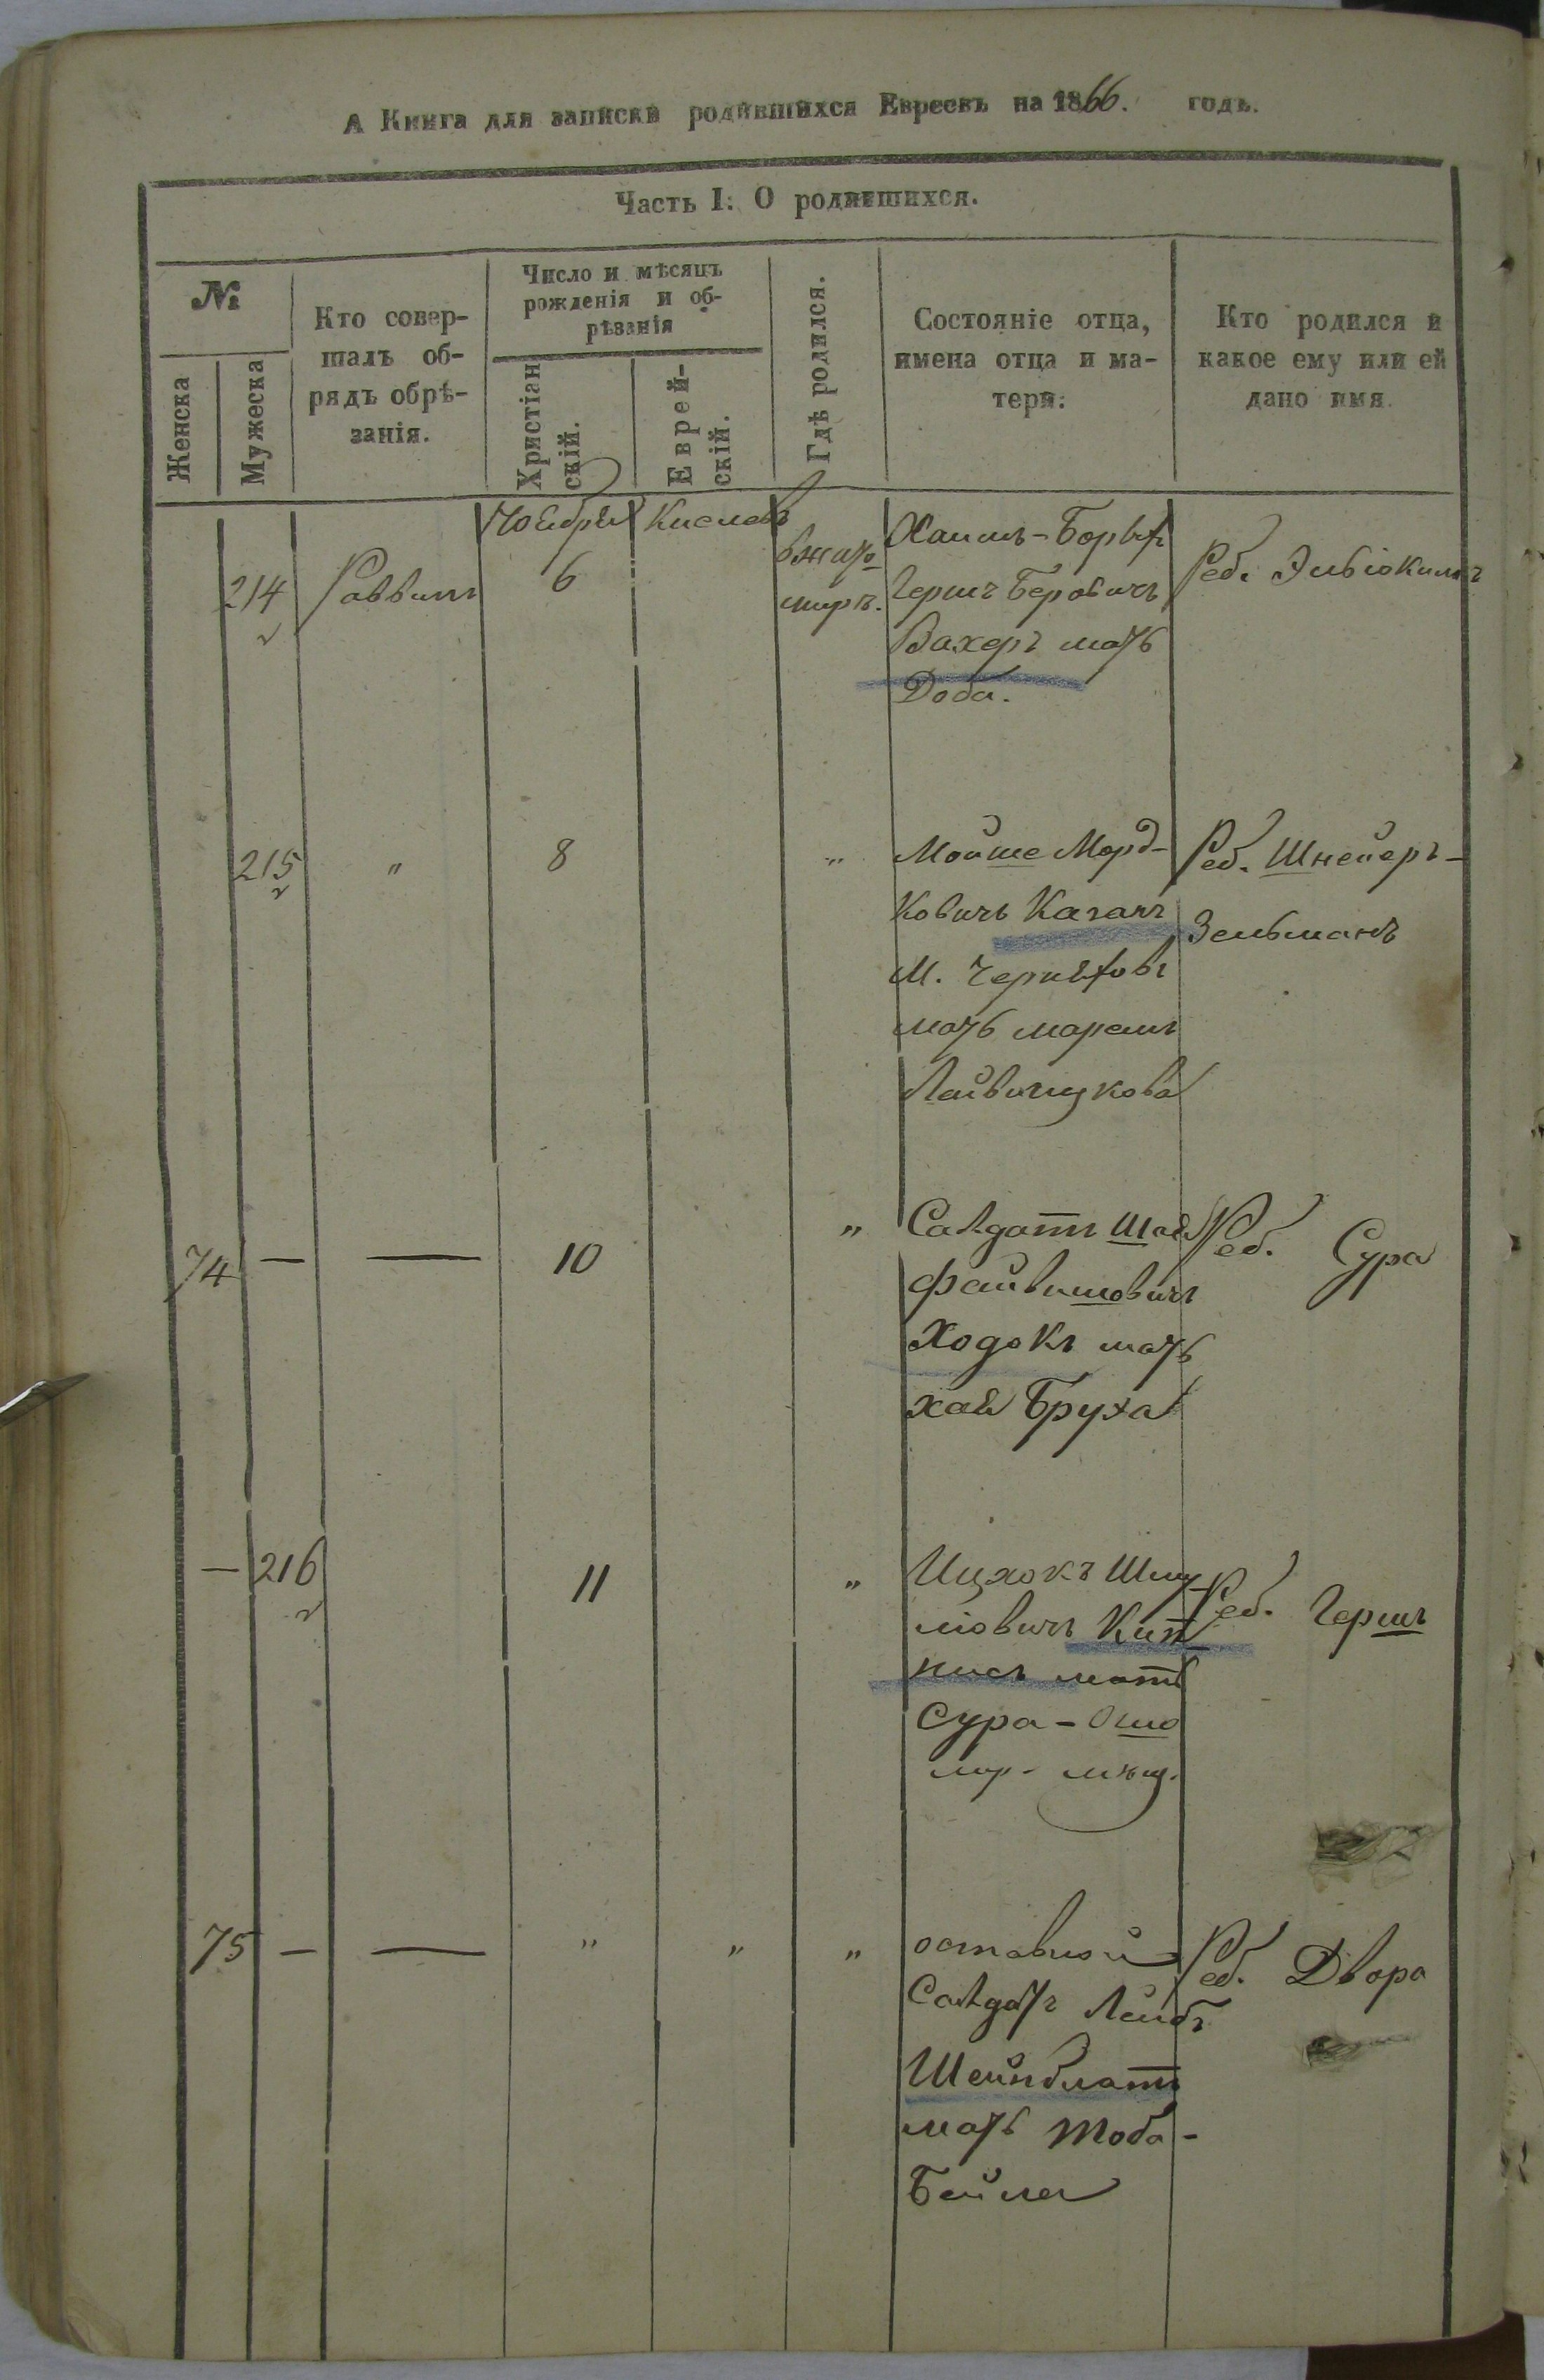 А Книга для записки родившихся Евреевъ на 1866. годъ.
Часть I: О родившихся.
№
Женска
Мужеска
Кто совер-
шалъ об-
рядъ обрѣ-
занія.
Число и мѣсяцъ
рожденія и об-
рѣзанія
Христіан
скій.
Еврей-
скій.
Гдѣ родился.
Состояніе отца,
имена отца и ма-
тери:
Кто родился и
какое ему или ей
дано имя.
Ноября
Кислевъ
214
Раввинъ
6
вжито
миръ.
Хаимъ-Борухъ
Гершъ Беровичъ
Вахеръ мать
Доба.
Реб. Эльіокимъ
215
"
8
"
Мойше Морд-
ковичъ Каганъ
М. Черняховъ
мать мареимъ
Реб. Шнейеръ-
Зельманъ
74
—
—
10
"
Салдатъ Шая
файвишовичъ
Ходокъ мать
хая Бруха
Реб. Сура
—
216
11
"
Ицхокъ Шму
ліовичъ Кип
нисъ мать
Сура-
Реб. Гершъ
75
—
—
"
"
"
оставной
Салдатъ Лейбъ
Шейнблатъ
мать Тоба-
Бейла
Реб. Двора